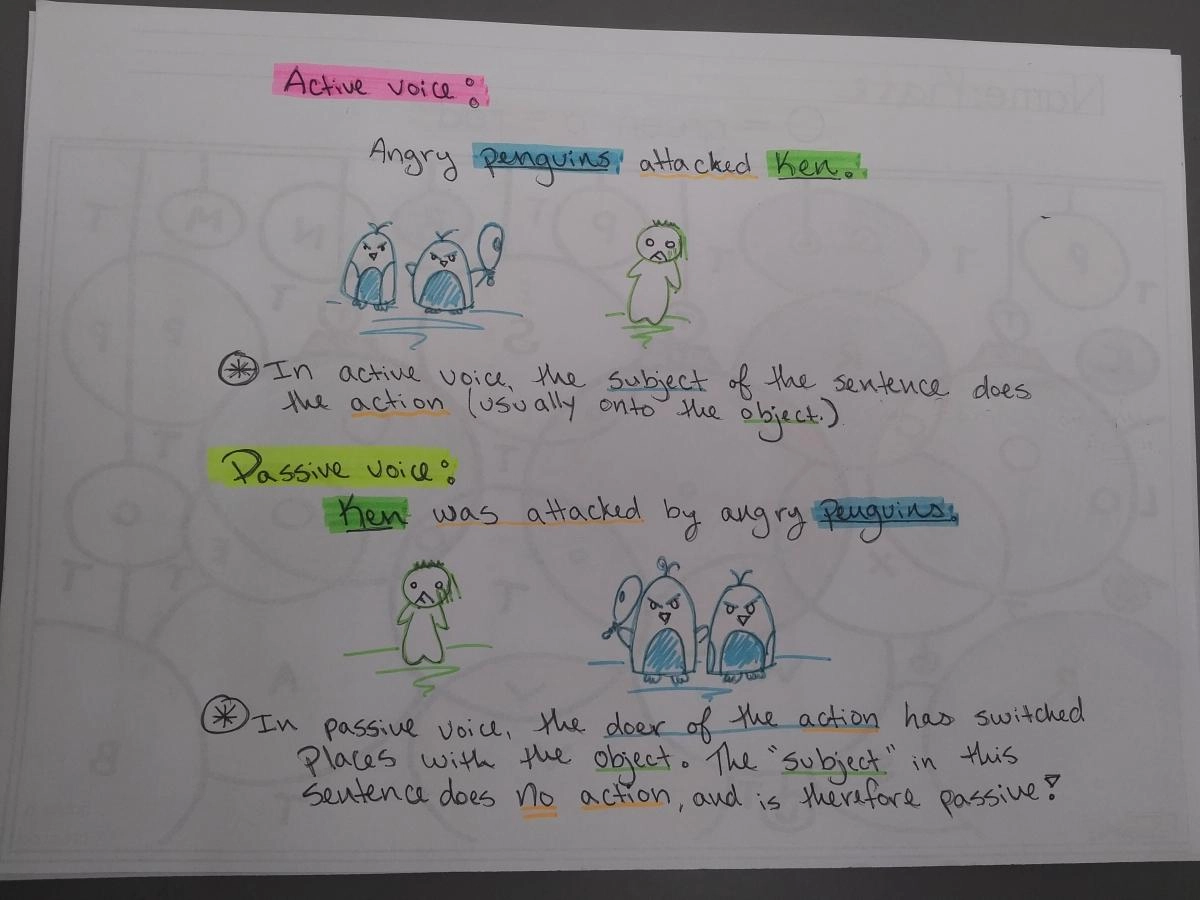 Active voice:
Angry penguins attacked Ken.
In active voice, the subject of the sentence does
the action (usually onto the object.)
Passive voice:
Ken was attacked by angry penguins.
In passive voice, the doer of the action has switched
places with the object. The "subject" in this
sentence does no action, and is therefore passive!